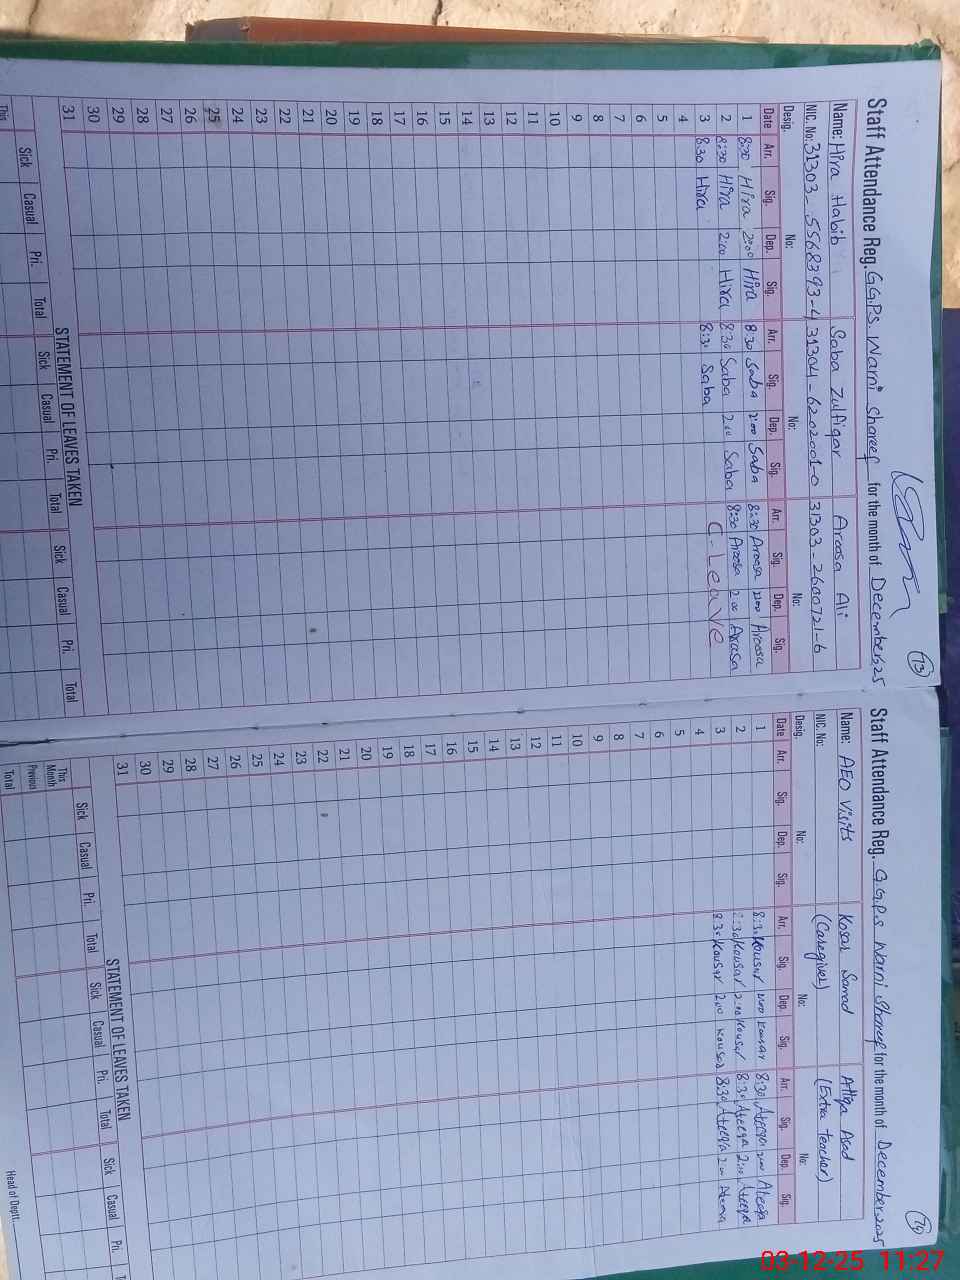 73
Staff Attendance Reg. G.G.P.S Warni Shareef for the month of December,25
Name: Hira Habib Saba Zulfiqar Aroosa Ali
NIC. No: 31303-5568393-4 31304-6202001-0 31303-2600721-6
Desig. No: No: No:
Date Arr. Sig. Dep. Sig. Arr. Sig. Dep. Sig. Arr. Sig. Dep. Sig.
1 8:30 Hira 2:00 Hira 8:30 Saba 2:00 Saba 8:30 Aroosa 2:00 Aroosa
2 8:30 Hira 2:00 Hira 8:30 Saba 2:00 Saba 8:30 Aroosa 2:00 Aroosa
3 8:30 Hira 8:30 Saba C. Leave
4
5
6
7
8
9
10
11
12
13
14
15
16
17
18
19
20
21
22
23
24
25
26
27
28
29
30
31
STATEMENT OF LEAVES TAKEN
Sick Casual Pri. Total Sick Casual Pri. Total Sick Casual Pri. Total
This
74
Staff Attendance Reg. G.G.P.S Warni Shareef for the month of December,2025
Name: AEO Visits Kosar Samad Attiqa Asad
NIC. No: (Caregiver) (Extra teacher)
Desig. No: No: No:
Date Arr. Sig. Dep. Sig. Arr. Sig. Dep. Sig. Arr. Sig. Dep. Sig.
1 8:30 Kousar 2:00 Kousar 8:30 Ateeqa 2:00 Ateeqa
2 8:30 Kousar 2:00 Kousar 8:30 Ateeqa 2:00 Ateeqa
3 8:30 Kousar 2:00 Kousar 8:30 Ateeqa 2:00 Ateeqa
4
5
6
7
8
9
10
11
12
13
14
15
16
17
18
19
20
21
22
23
24
25
26
27
28
29
30
31
STATEMENT OF LEAVES TAKEN
Sick Casual Pri. Total Sick Casual Pri. Total Sick Casual Pri. T
This Month
Previous
Total
Head of Deptt.
03-12-25 11:27